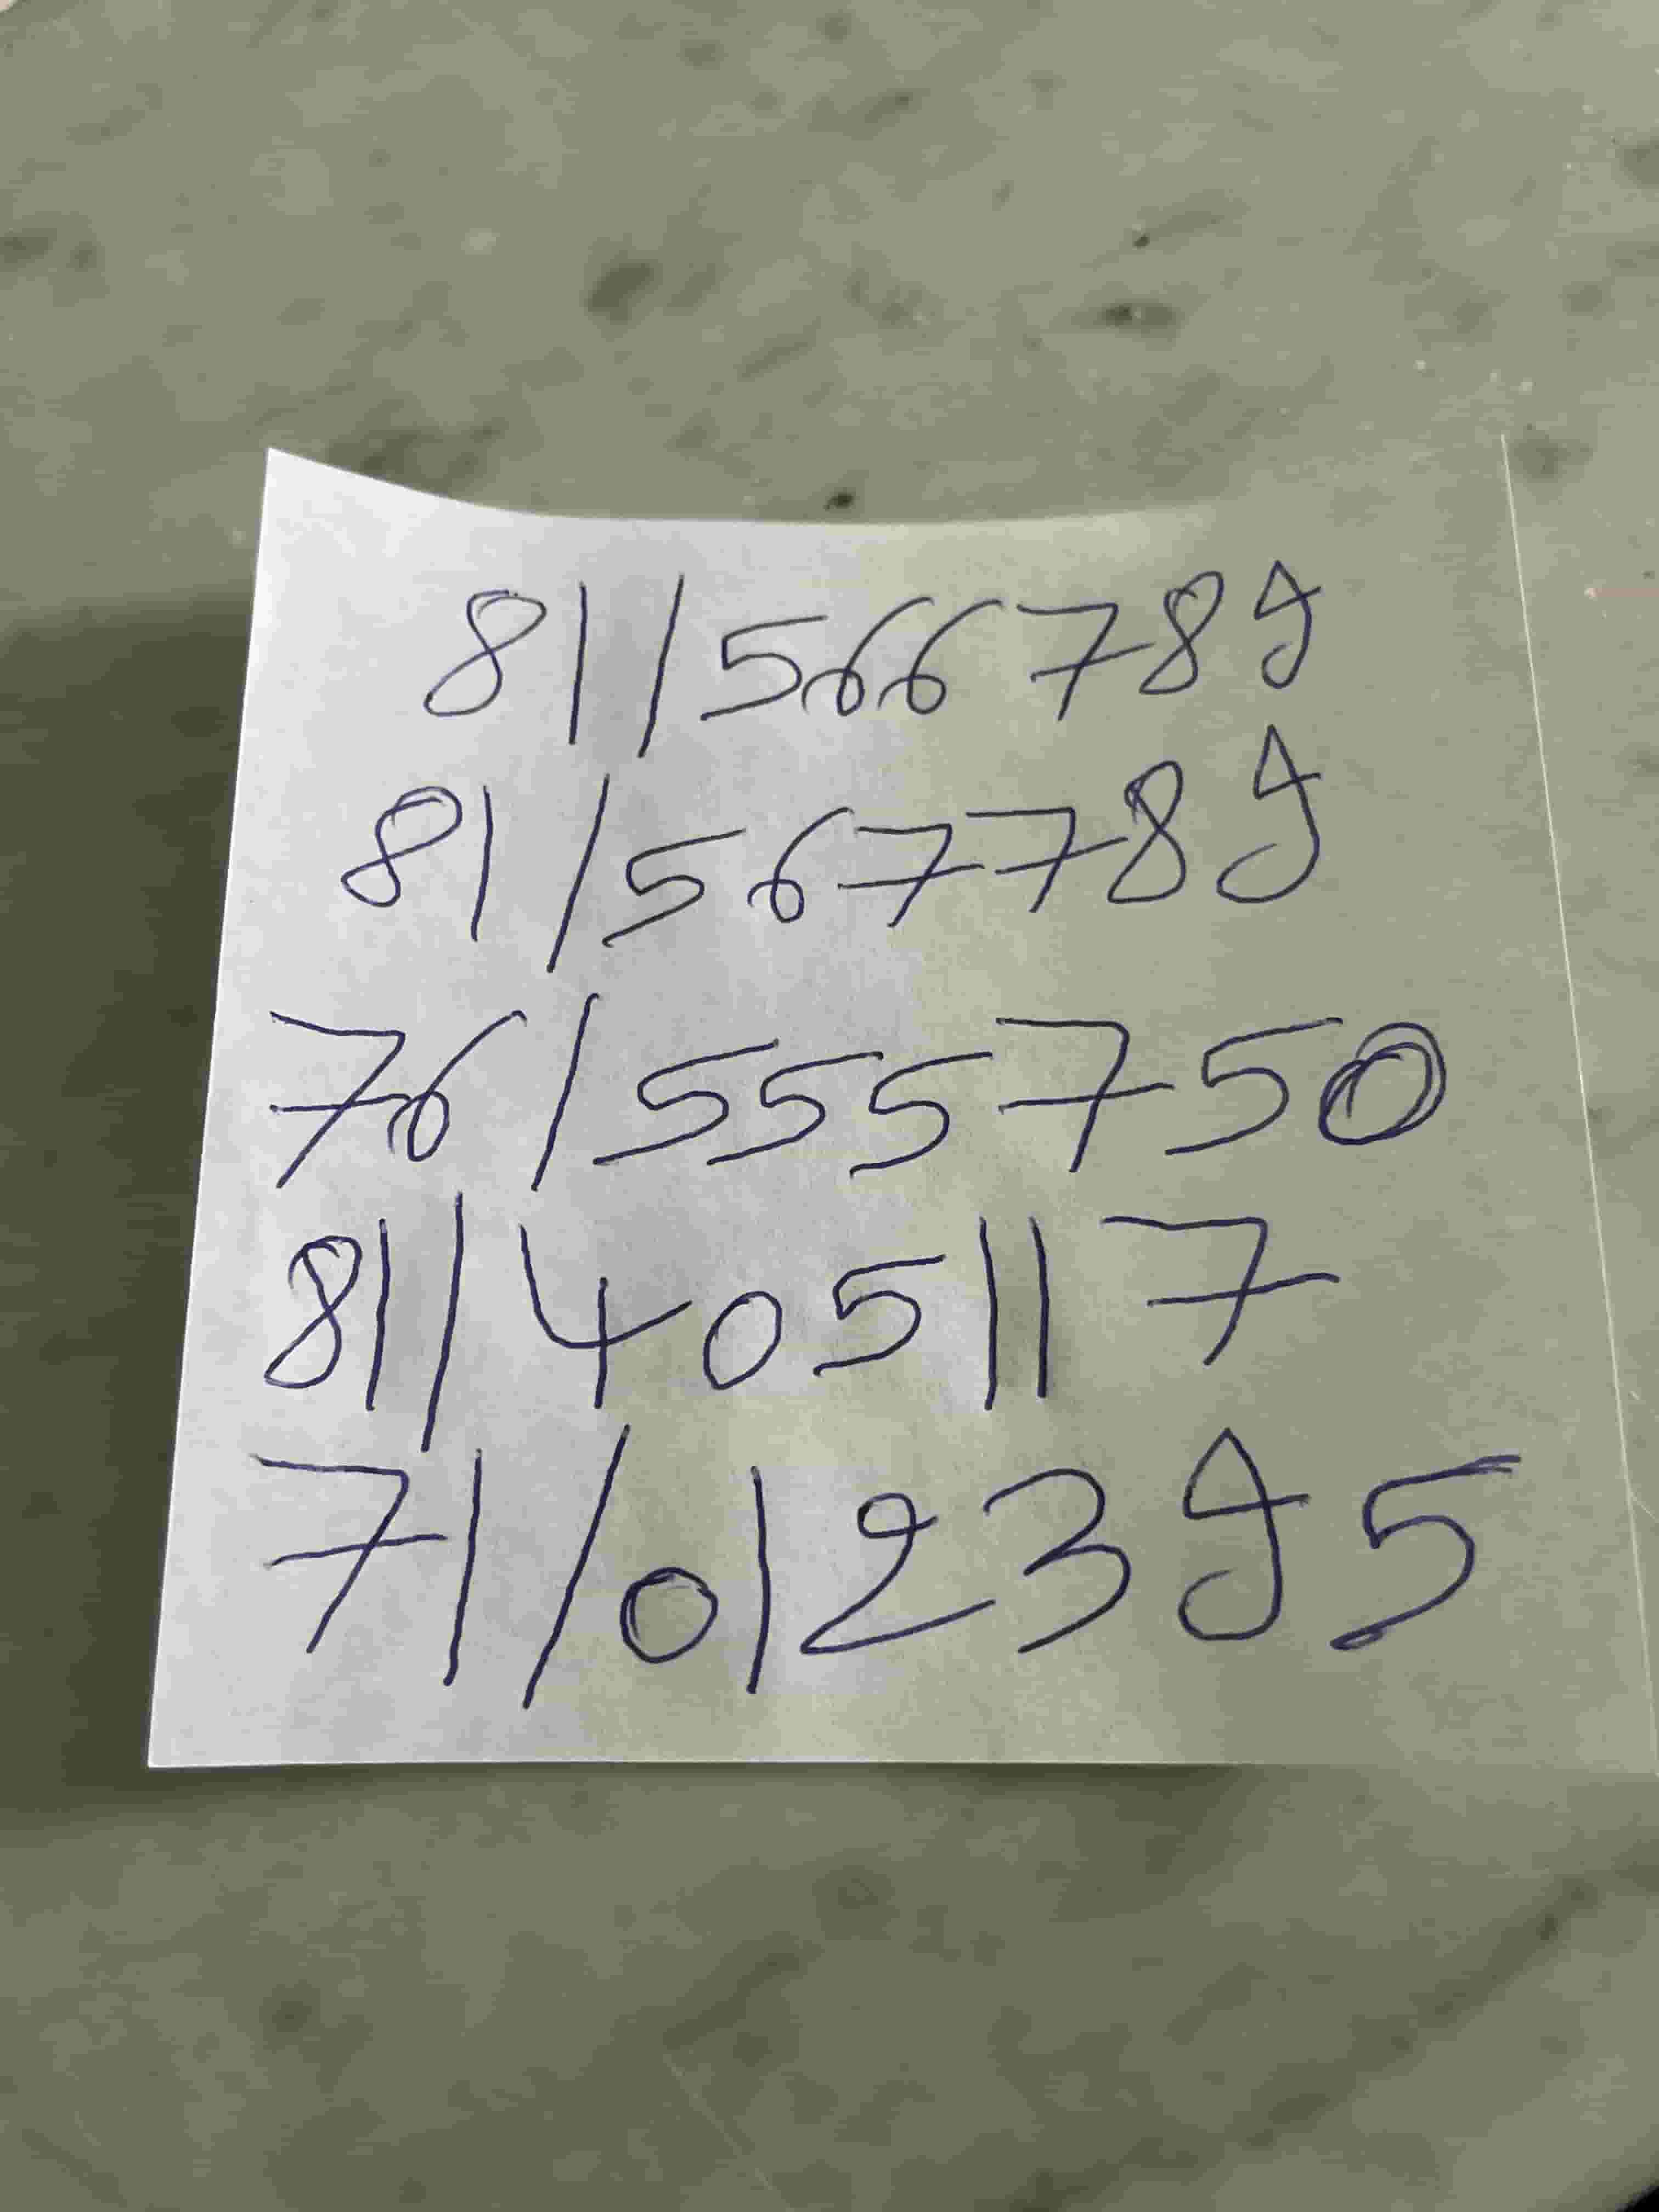 81/566789
81/567789
76/555750
81/405117
71/012395